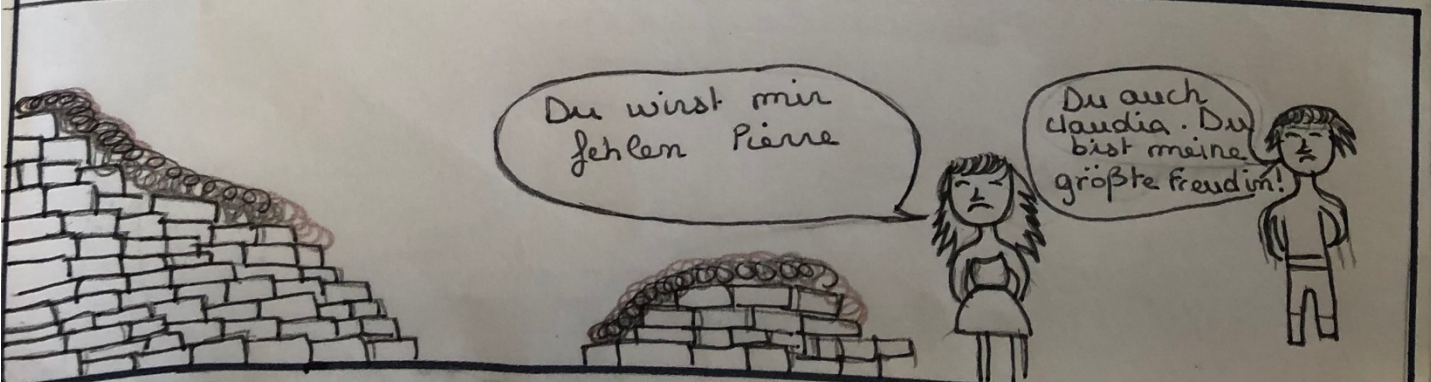 Du wirst mir
fehlen Pierre
Du auch
claudia. Du
bist meine
größte Freudin!